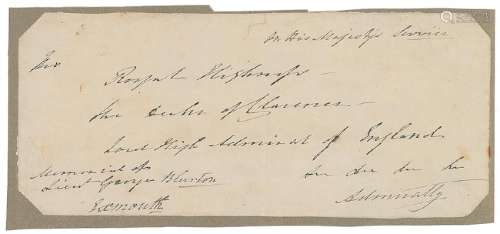 On His Majestys Service
His
Royal Highness
The Duke of Clarence
Lord High Admiral of England
Memorial of
Lieut George Blurton
Exmouth
Admiralty